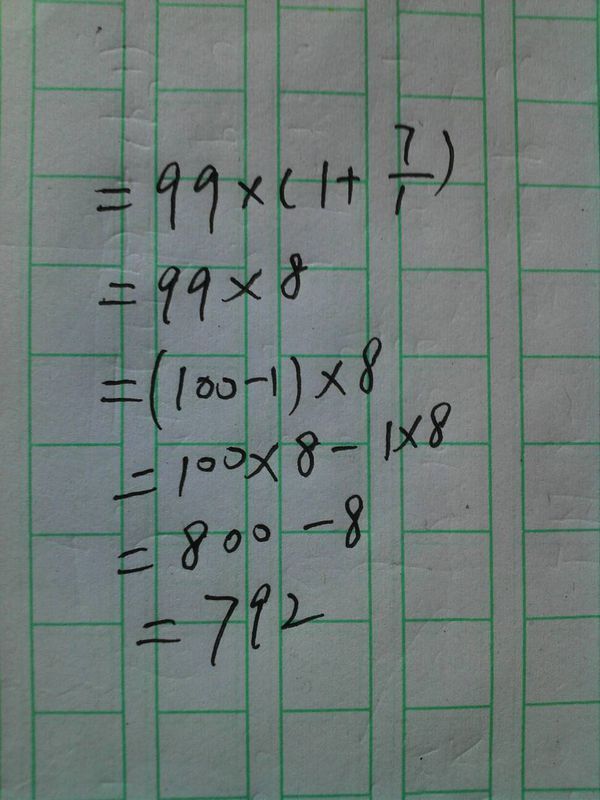 = 99 × ( 1 + 7/1 )
= 99 × 8
= (100 - 1) × 8
= 100 × 8 - 1 × 8
= 800 - 8
= 792